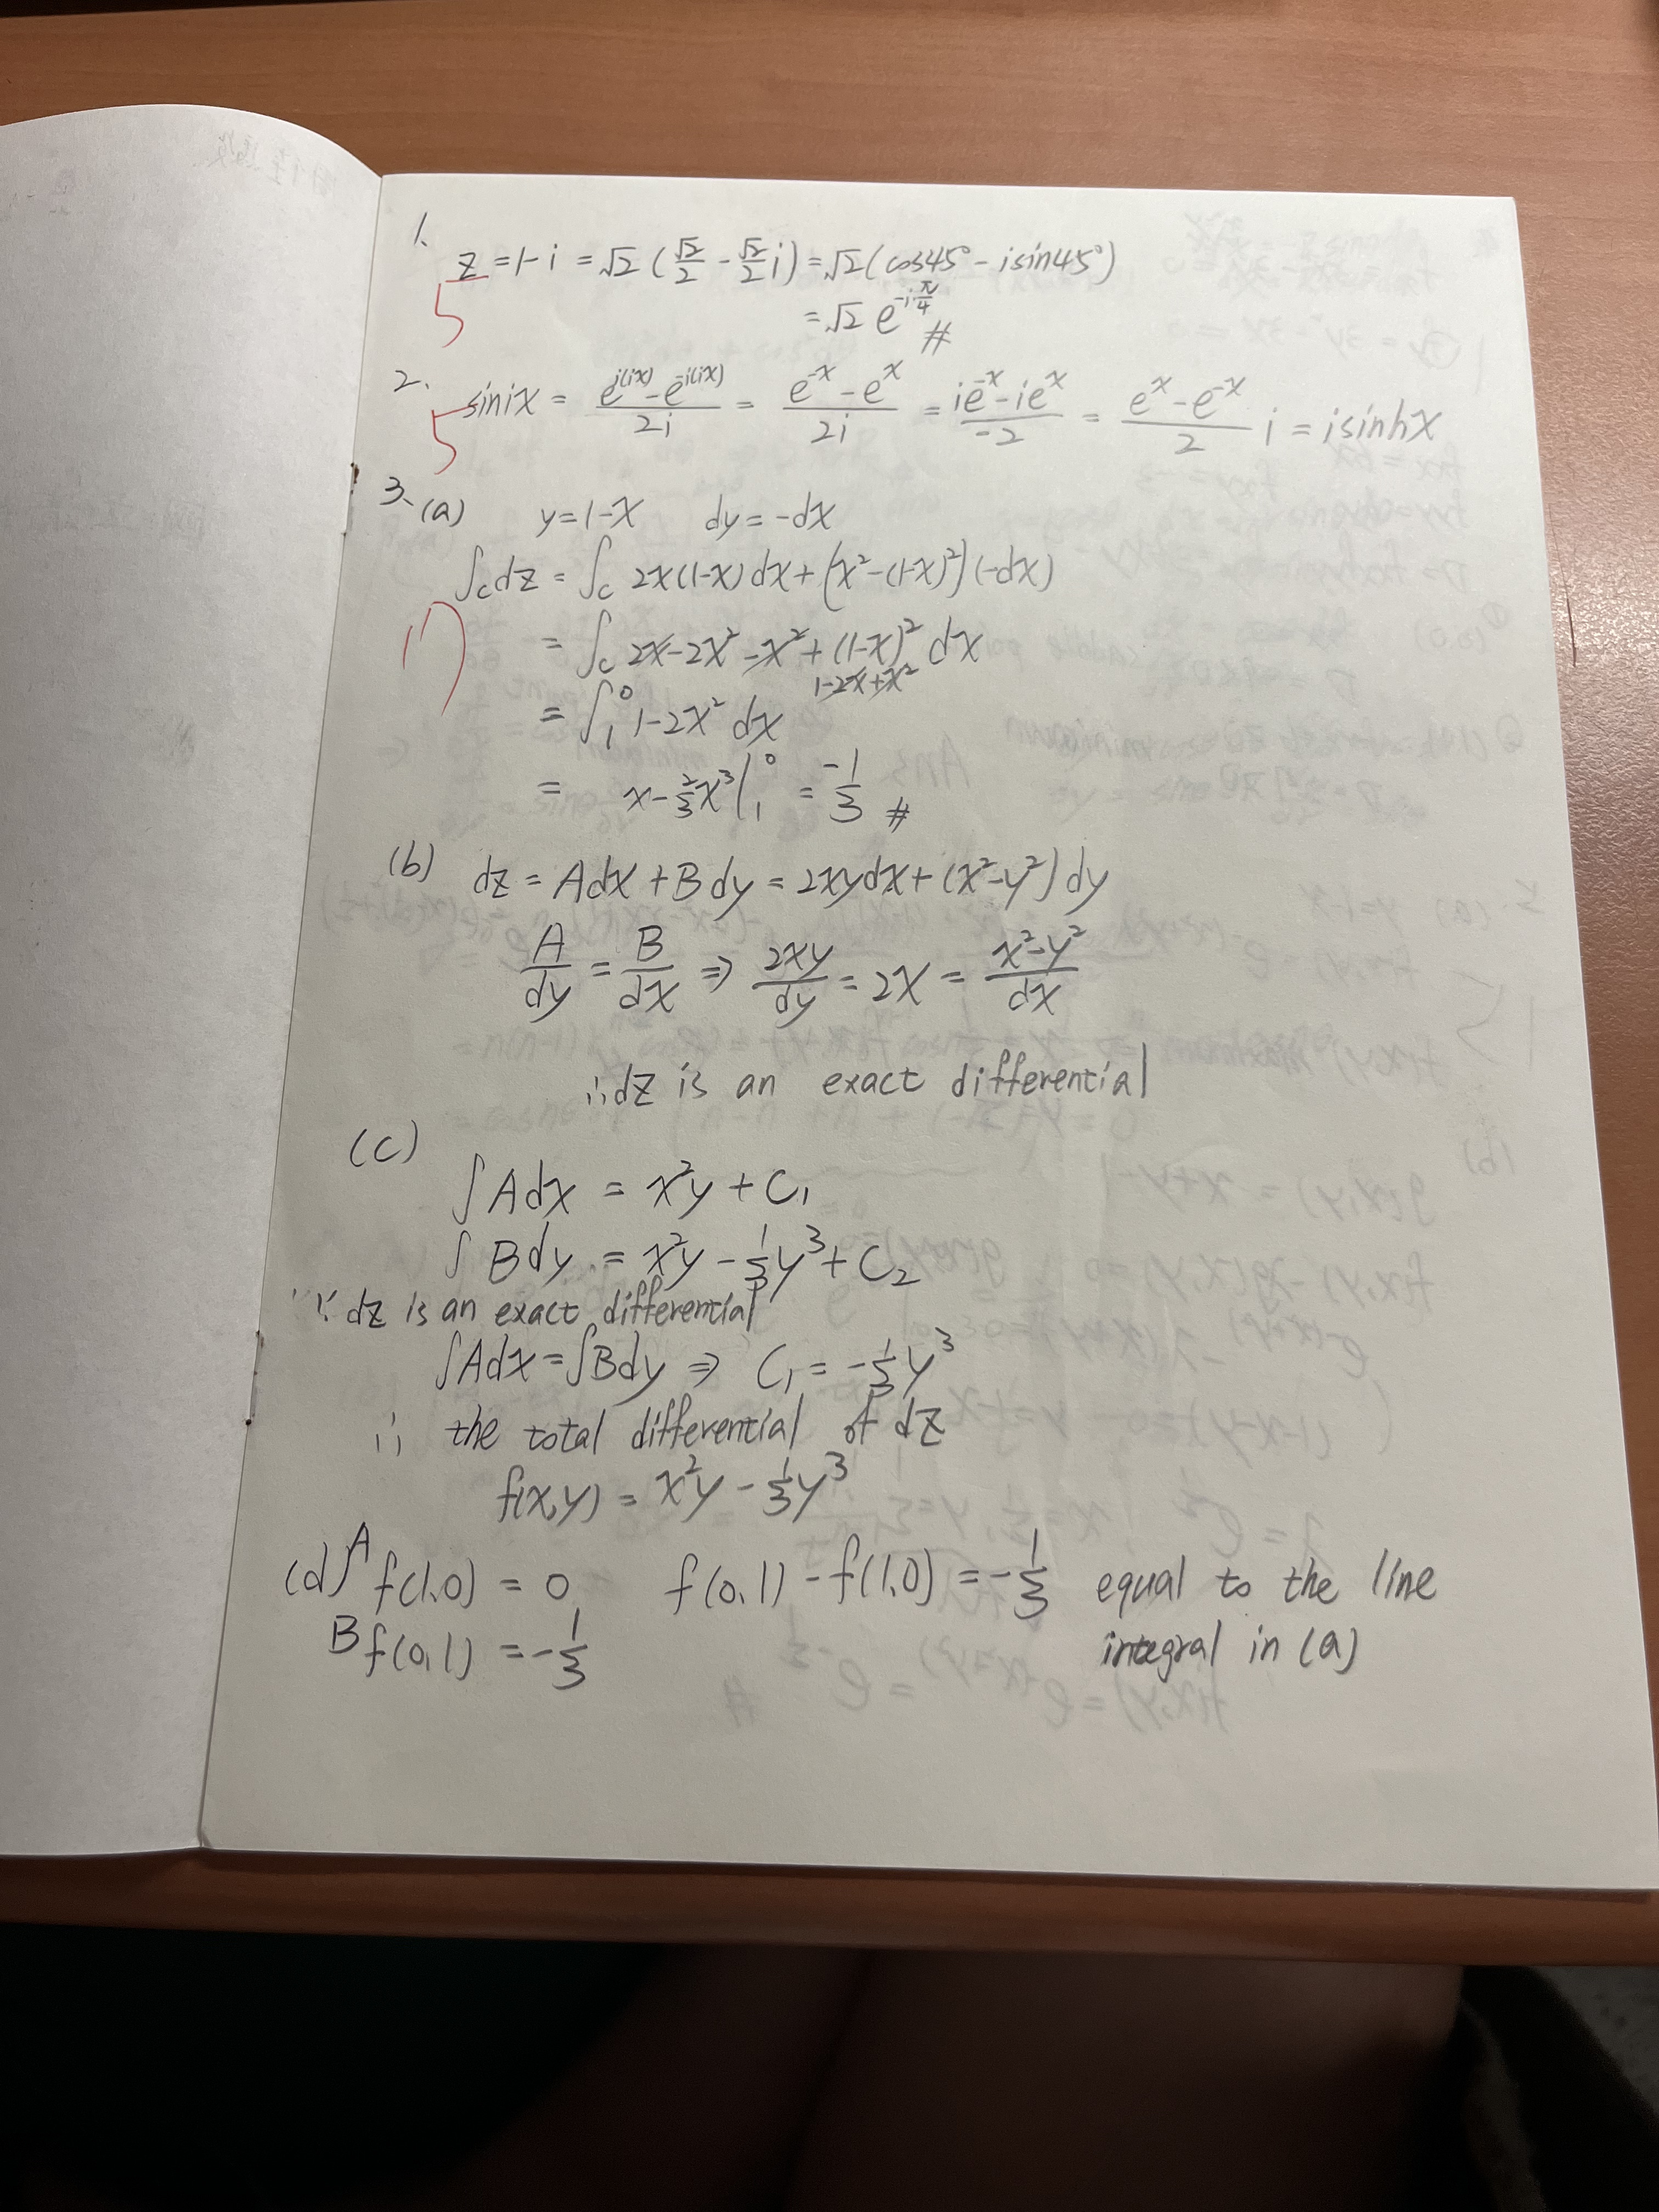 1、
z = 1-i = √2 (√2/2 - √2/2 i) = √2 (cos45° - i sin45°)
5
= √2 e^(-iπ/4) #
2、 sin ix = (e^(i(ix)) - e^(-i(ix)))/2i = (e^(-x) - e^x)/2i = (ie^(-x) - ie^x)/-2 = (e^x - e^(-x))/2 i = i sinh x
5
3、(a) y = 1-x dy = -dx
∫_C dz = ∫_C 2x(1-x)dx + (x²-(1-x)²)(-dx)
17
= ∫_C 2x-2x²-x²+(1-x)² dx
1-2x+x²
= ∫_1^0 1-2x² dx
= x-2/3x³|_1^0 = -1/3 #
(b) dz = Adx + Bdy = 2xydx + (x²-y²)dy
A/dy = B/dx ⇒ 2xy/dy = 2x = (x²-y²)/dx
∴dz is an exact differential
(c)
∫Adx = x²y + C₁
∫Bdy = x²y - 1/3y³ + C₂
∵ dz is an exact differential
∫Adx = ∫Bdy ⇒ C₁ = -1/3y³
∴ the total differential of dz
f(x,y) = x²y - 1/3y³
(d) A f(1,0) = 0 f(0,1) - f(1,0) = -1/3 equal to the line
B f(0,1) = -1/3 integral in (a)